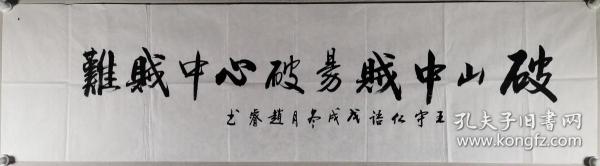 破山中賊易破心中賊難
王守仁语戊戌冬月趙睿书
孔夫子旧书网
www.kongfz.com